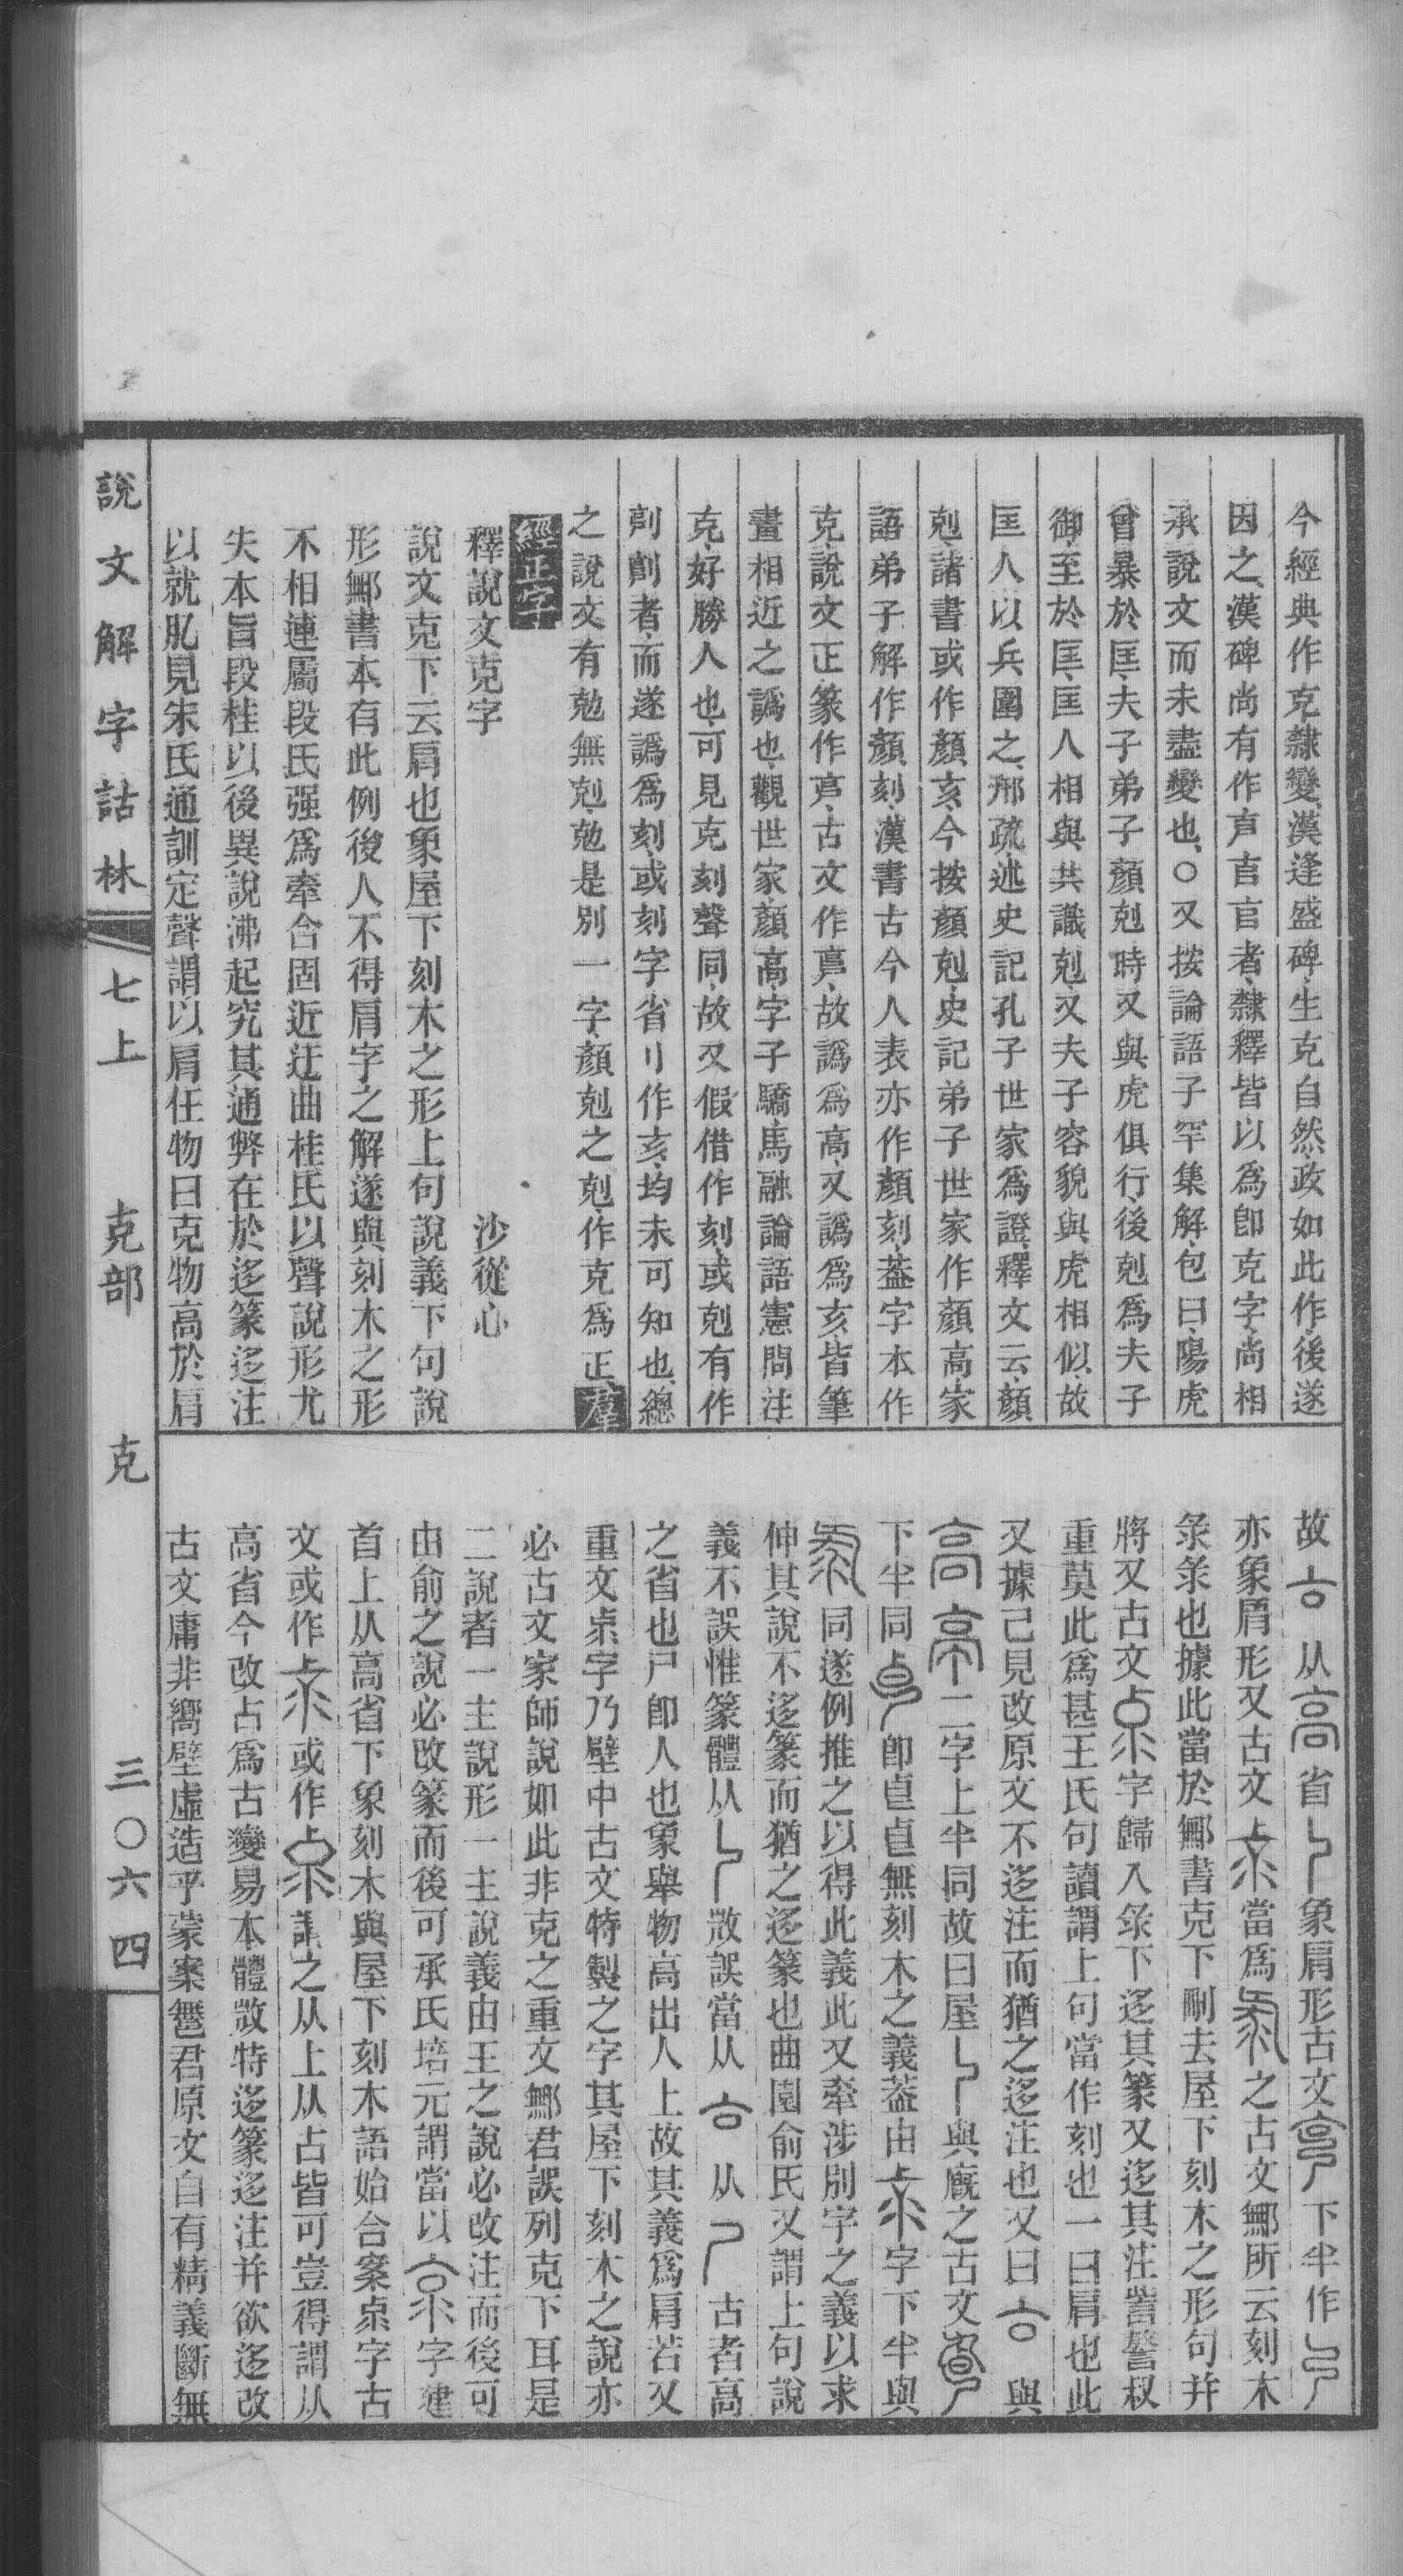 今經典作克隸變漢逢盛碑生克自然政如此作後遂
因之漢碑尚有作声㐭官者隸釋皆以爲卽克字尚相
承說文而未盡變也○又按論語子罕集解包曰陽虎
曾暴於匡夫子弟子顏剋時又與虎俱行後剋爲夫子
御至於匡匡人相與共識剋又夫子容貌與虎相似故
匡人以兵圍之邢疏述史記孔子世家爲證釋文云顏
剋諸書或作顏亥今按顏剋史記弟子世家作顏高家
語弟子解作顏刻漢書古今人表亦作顏刻葢字本作
克說文正篆作古文作故譌爲高又譌爲亥皆筆
畫相近之譌也觀世家顏高字子驕馬融論語憲問注
克好勝人也可見克刻聲同故又假借作刻或剋有作
者而遂譌爲刻或刻字省刂作亥均未可知也總
之說文有勊無剋勊是別一字顏剋之剋作克爲正羣
經正字
釋說文克字 沙從心
說文克下云肩也象屋下刻木之形上句說義下句說
形鄦書本有此例後人不得肩字之解遂與刻木之形
不相連屬段氏强爲牽合固近迂曲桂氏以聲說形尤
失本旨段桂以後異說沸起究其通弊在於迻篆迻注
以就肊見朱氏通訓定聲謂以肩任物曰克物高於肩
故从省象肩形古文下半作
亦象肩形又古文當爲之古文鄦所云刻木
彔彔也據此當於鄦書克下刪去屋下刻木之形句幷
將又古文字歸入彔下迻其篆又迻其注訾謷叔
重莫此爲甚王氏句讀謂上句當作刻也一曰肩也此
又據己見改原文不迻注而猶之迻注也又曰與
二字上半同故曰屋與之古文
下半同卽無刻木之義葢由字下半與
同遂例推之以得此義此又牽涉別字之義以求
伸其說不迻篆而猶之迻篆也曲園俞氏又謂上句說
義不誤惟篆體从㪚誤當从从古者高
之省也尸卽人也象舉物高出人上故其義爲肩若又
重文字乃壁中古文特製之字其屋下刻木之說亦
必古文家師說如此非克之重文鄦君誤列克下耳是
二說者一主說形一主說義由王之說必改注而後可
由俞之說必改篆而後可承氏培元謂當以字建
首上从高省下象刻木與屋下刻木語始合案字古
文或作或作謂之从上从占皆可豈得謂从
高省今改占爲古變易本體㪚特迻篆迻注幷欲迻改
古文庸非嚮壁虛造乎蒙案鄦君原文自有精義斷無
說文解字詁林 七上 克部 克 三〇六四